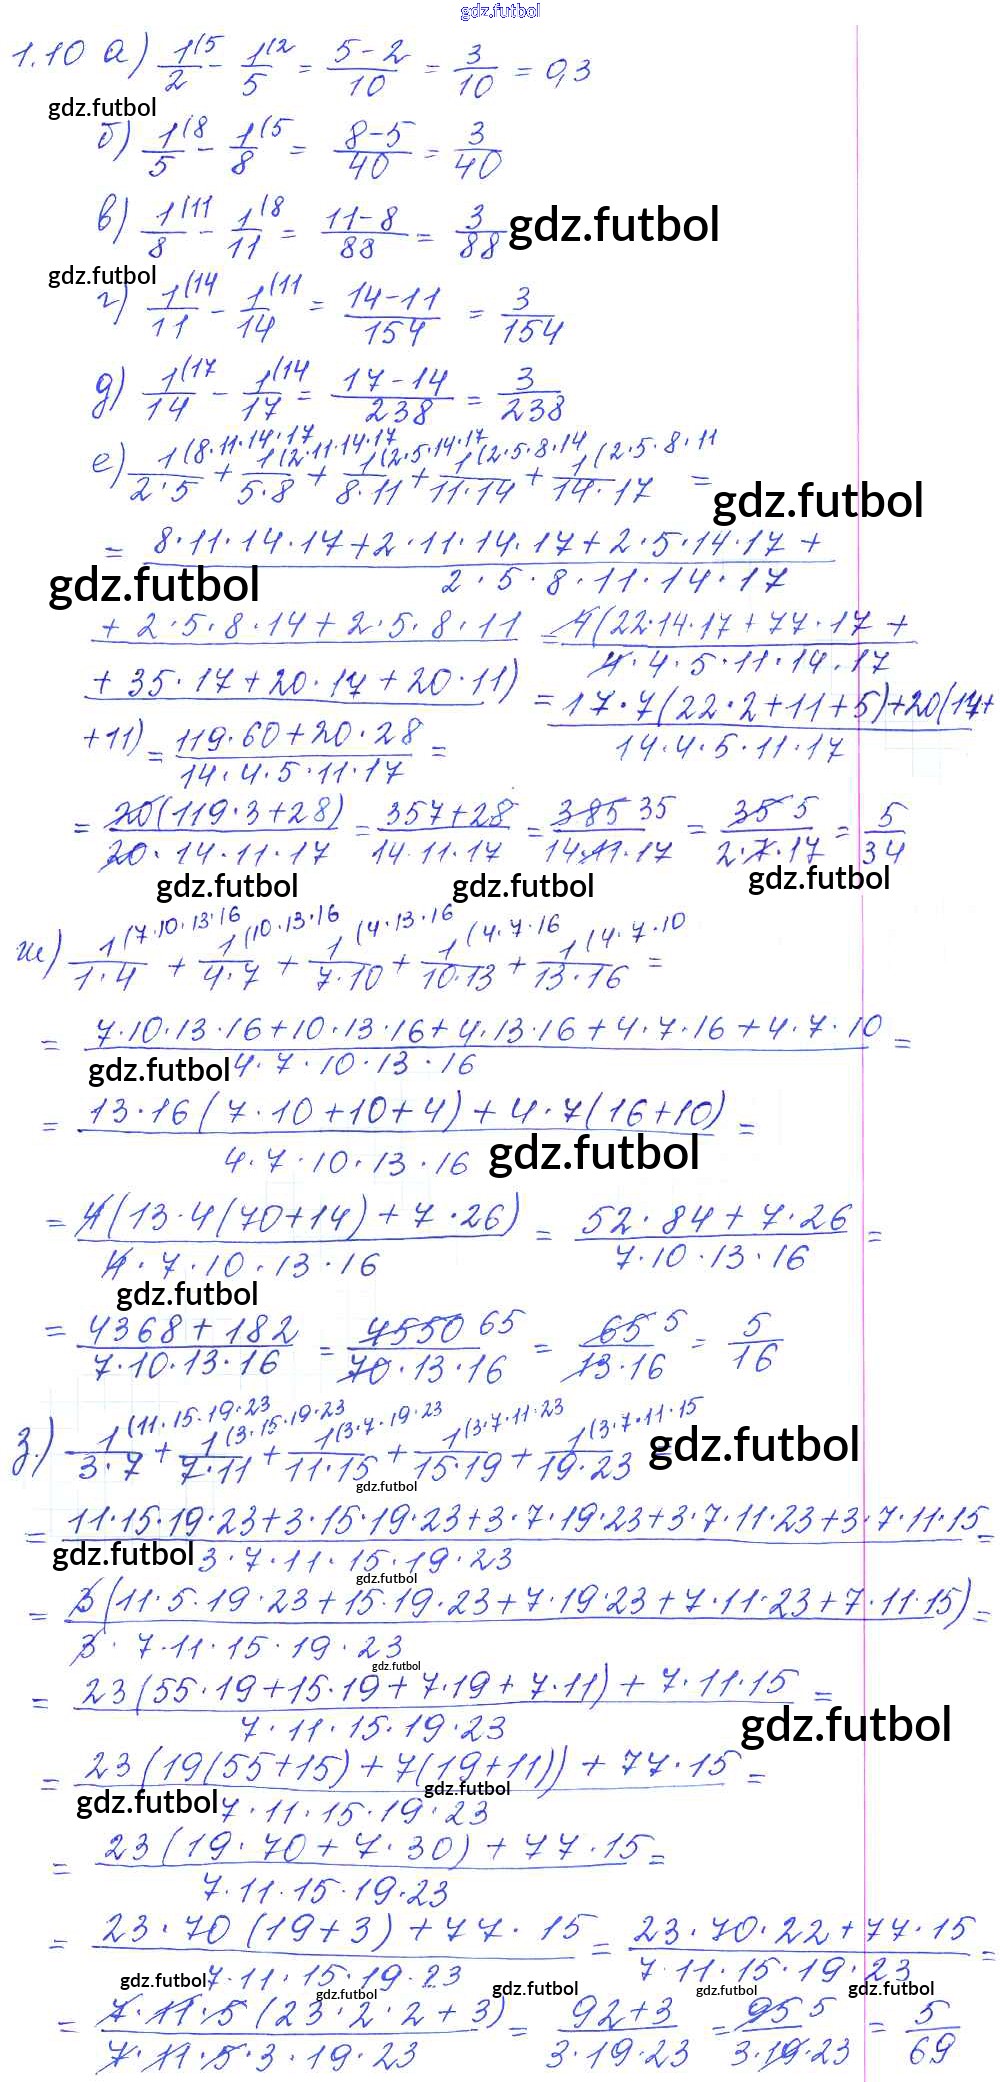 gdz.futbol
1.10 а) 1(5/2 - 1(2/5 = (5-2)/10 = 3/10 = 0,3
gdz.futbol
б) 1(8/5 - 1(5/8 = (8-5)/40 = 3/40
в) 1(11/8 - 1(8/11 = (11-8)/88 = 3/88 gdz.futbol
gdz.futbol
г) 1(14/11 - 1(11/14 = (14-11)/154 = 3/154
д) 1(17/14 - 1(14/17 = (17-14)/238 = 3/238
е) 1(8·11·14·17/2·5 + 1(2·11·14·17/5·8 + 1(2·5·14·17/8·11 + 1(2·5·8·14/11·14 + 1(2·5·8·11/14·17 =
gdz.futbol
= 8·11·14·17+2·11·14·17+2·5·14·17+
gdz.futbol 2·5·8·11·14·17
+2·5·8·14+2·5·8·11 = 4(22·14·17+77·17+
4·4·5·11·14·17
+35·17+20·14+20·11) = 17·7(22·2+11+5)+20(17+
14·4·5·11·17
+11) = (119·60+20·28)/(14·4·5·11·17) =
= 20(119·3+28)/(20·14·11·17) = (357+28)/(14·11·17) = 385 35/(14·11·17) = 35 5/(2·7·17) = 5/34
gdz.futbol gdz.futbol gdz.futbol
ж) 1(7·10·13·16/1·4 + 1(10·13·16/4·7 + 1(4·13·16/7·10 + 1(4·7·16/10·13 + 1(4·7·10/13·16 =
= 7·10·13·16+10·13·16+4·13·16+4·7·16+4·7·10 =
gdz.futbol 4·7·10·13·16
= 13·16(7·10+10+4)+4·7(16+10) =
4·7·10·13·16 gdz.futbol
= 4(13·4(70+14)+7·26)/(4·7·10·13·16) = (52·84+7·26)/(7·10·13·16) =
gdz.futbol
= (4368+182)/(7·10·13·16) = 4550 65/(70·13·16) = 65 5/(13·16) = 5/16
з.) 1(11·15·19·23/3·7 + 1(3·15·19·23/7·11 + 1(3·7·19·23/11·15 + 1(3·7·11·23/15·19 + 1(3·7·11·15/19·23 gdz.futbol =
gdz.futbol
= 11·15·19·23+3·15·19·23+3·7·19·23+3·7·11·23+3·7·11·15 =
gdz.futbol 3·7·11·15·19·23
gdz.futbol
= 3(11·5·19·23+15·19·23+7·19·23+7·11·23+7·11·15) =
3·7·11·15·19·23
gdz.futbol
= 23(55·19+15·19+7·19+7·11)+7·11·15 =
7·11·15·19·23 gdz.futbol
= 23(19(55+15)+7(19+11))+77·15 =
gdz.futbol 7·11·15·19·23 gdz.futbol
= 23(19·70+7·30)+77·15 =
7·11·15·19·23
= 23·70(19+3)+77·15 = 23·70·22+77·15 =
7·11·15·19·23 7·11·15·19·23
gdz.futbol gdz.futbol gdz.futbol gdz.futbol gdz.futbol
= 7·11·5(23·2·2+3)/(7·11·5·3·19·23) = (92+3)/(3·19·23) = 95 5/(3·19·23) = 5/69